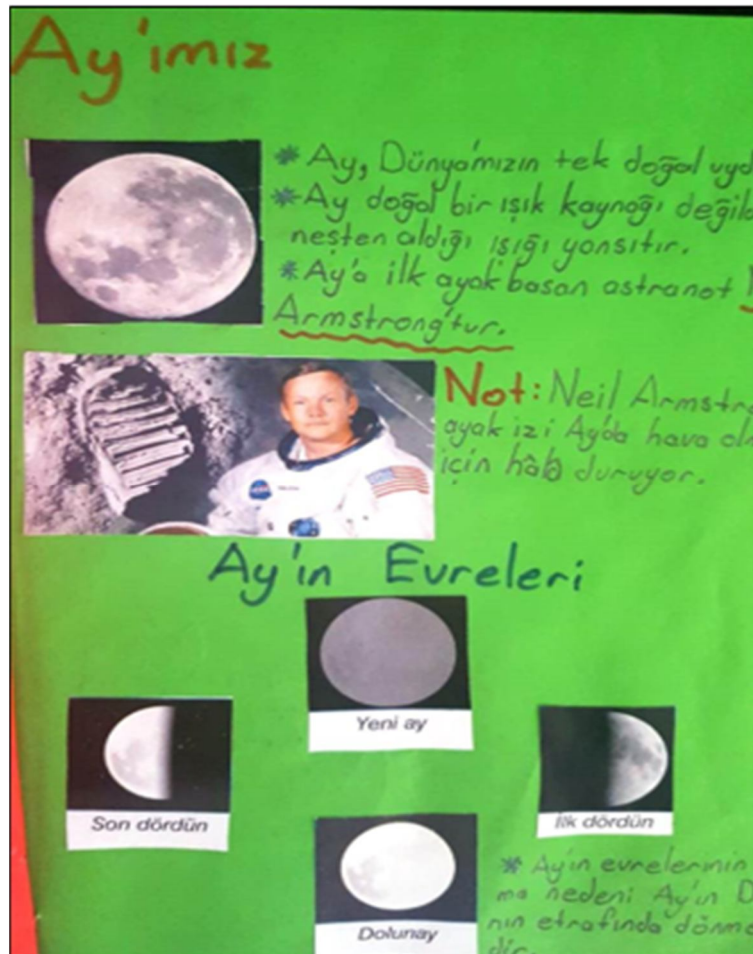 Ay'ımız
* Ay, Dünya'mızın tek doğal uyd
* Ay doğal bir ışık kaynağı değil
neşten aldığı ışığı yansıtır.
* Ay'a ilk ayak basan astranot
Armstrong'tur.
Not: Neil Armstr
ayak izi Ay'da hava ol
için hâlâ duruyor.
Ay'ın Evreleri
Yeni ay
Son dördün
İlk dördün
Dolunay
* Ay'ın evrelerinin
ma nedeni Ay'ın D
nın etrafında dönme
dir.